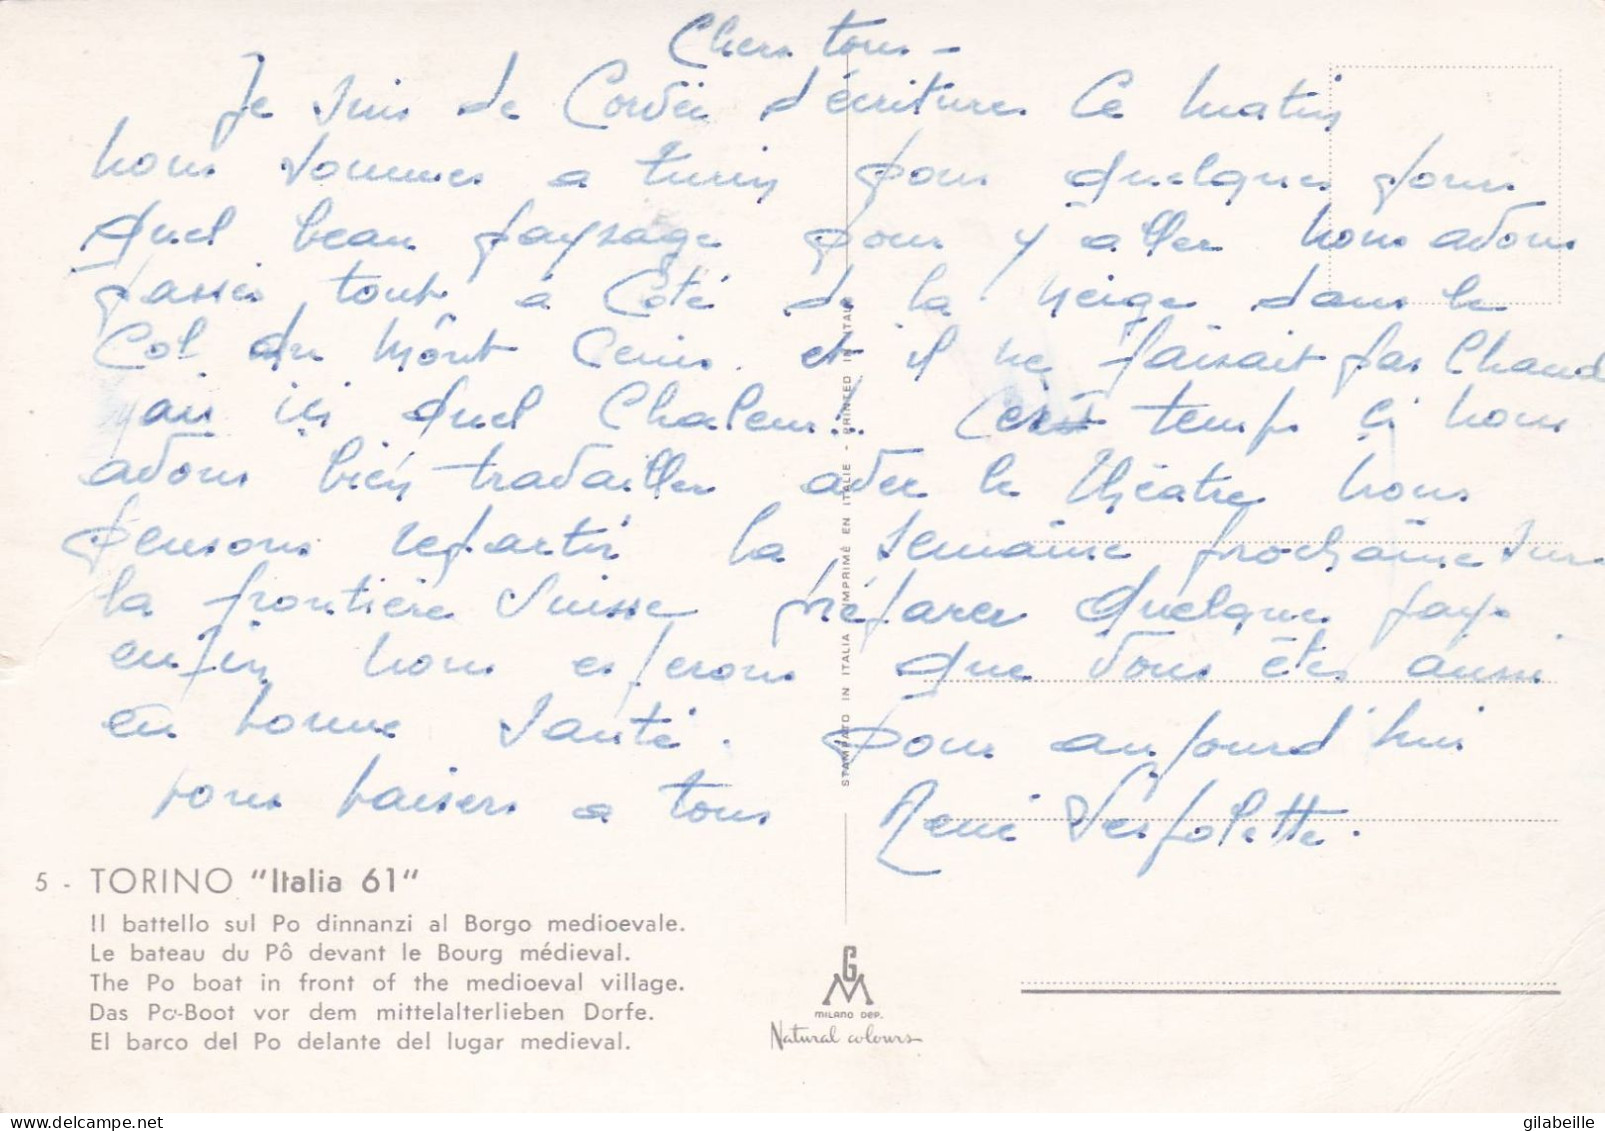 Chers tous -
Je suis de Corvée d'écritures ce matin
nous sommes a turin pour quelques jours
quel beau paysage pour y aller nous avons
passés tout à coté de la neige dans le
Col du Mont Cenis. et il ne faisait pas chaud
mais ici quel chaleur!! temps ci nous
avons bien travailler avec le théatre nous
pensons repartir la semaine prochaine sur
la frontière Suisse préparer quelques pays.
enfin nous esperons que vous êtes aussi
en bonne santé. pour aujourd'hui
bons baisers a tous René
5 - TORINO "Italia 61"
Il battello sul Po dinnanzi al Borgo medioevale.
Le bateau du Pô devant le Bourg médieval.
The Po boat in front of the medioeval village.
Das Po-Boot vor dem mittelalterlieben Dorfe.
El barco del Po delante del lugar medieval.
STAMPATO IN ITALIA - IMPRIMÉ EN ITALIE - PRINTED IN ITALY
GM
MILANO DEP.
Natural colours
www.delcampe.net
gilabeille